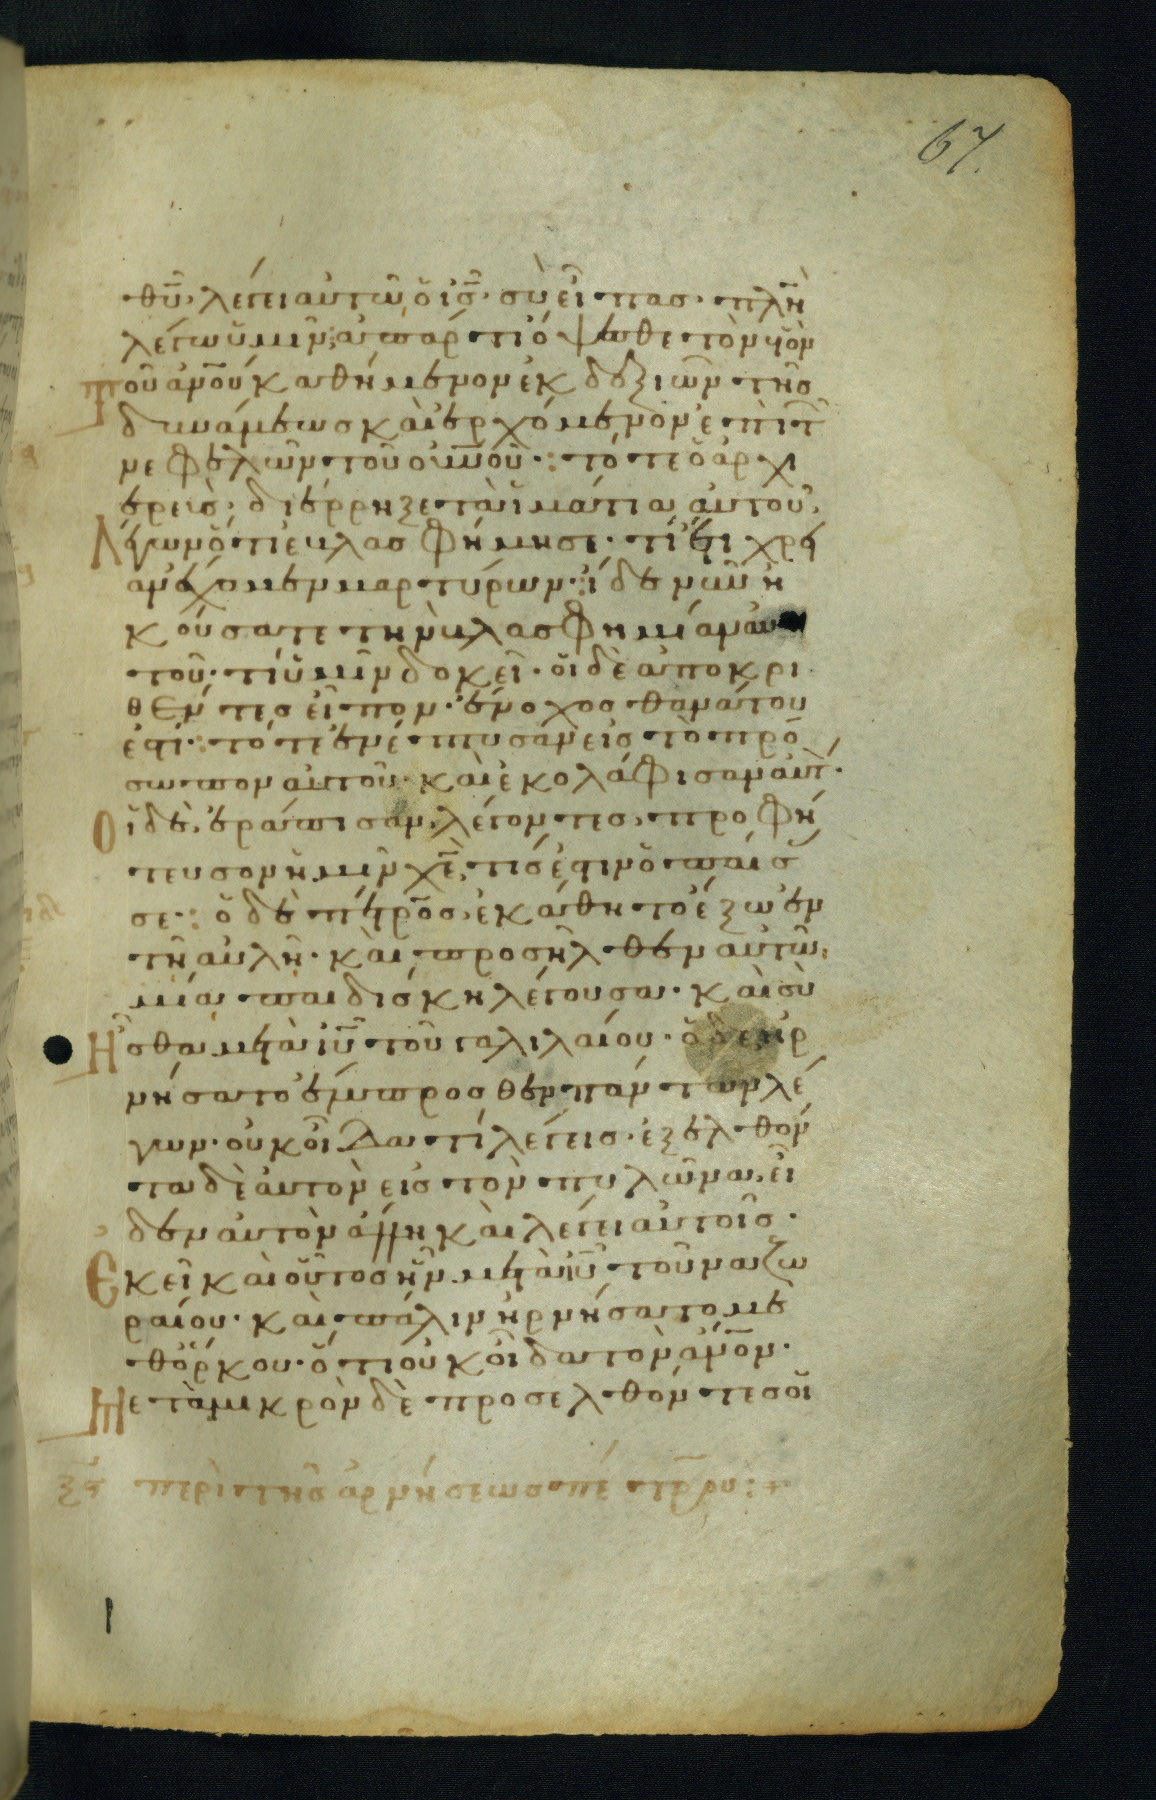 67.
θῡ· λέγει αὐτῶ ὁ ις̄· σὺ εἶπας· πλὴν
λέγω ὑμῖν· ἀπάρτι ὄψεσθε τὸν υἱὸν
τοῦ ἀν̄ου καθήμενον ἐκ δεξιῶν τῆς
δυνάμεως καὶ ἐρχόμενον ἐπὶ τ
νεφελῶν τοῦ οὐν̄οῦ·: τότε ὁ ἀρχι
ερεὺς· διέρρηξε τὰ ἱμάτια αὐτοῦ,
Λέγων ὅτι ἐβλασφήμησε· τί ἔτι χρεί
αν ἔχομεν μαρτύρων·: ἴδε νῦν ἠ
κούσατε τὴν βλασφημίαν αὐ
τοῦ· τί ὑμῖν δοκεῖ· οἱ δὲ ἀποκρι
θέντες εἶπον· ἔνοχος θανάτου
ἐστί·: τότε ἐνέπτυσαν εἰς τὸ πρό
σωπον αὐτοῦ· καὶ ἐκολάφισαν αὐτ·
Οἱ δὲ, ἐράπισαν, λέγοντες, προφή
τευσον ἡμῖν χε̄, τίς ἐστιν ὁ παίσ
σε·: ὁ δὲ πέτρος, ἐκάθητο ἔξω ἐν
τῆ αὐλῆ· καὶ προσῆλθεν αὐτῶ,
μία παιδίσκη λέγουσα· καὶ σὺ
Ἦσθα μετὰ ιῡ τοῦ γαλιλαίου· ὁ δὲ ἠρ
νήσατο ἔμπροσθεν πάντων λέ
γων· οὐκ οἶδα τί λέγεις· ἐξελθόν
τα δὲ αὐτὸν εἰς τὸν πυλῶνα, εἶ
δεν αὐτὸν ἄλλη καὶ λέγει αὐτοῖς·
Ἐκεῖ καὶ οὗτος ἦν μετὰ ιῡ τοῦ ναζω
ραίου· καὶ πάλιν ἠρνήσατο με
θ᾽ ὅρκου· ὅτι οὐκ οἶδα τὸν ἀν̄ον·
Μετὰ μικρὸν δὲ προσελθόντες οἱ
ξς̄ περὶ τῆς ἀρνήσεως πέτρου:+